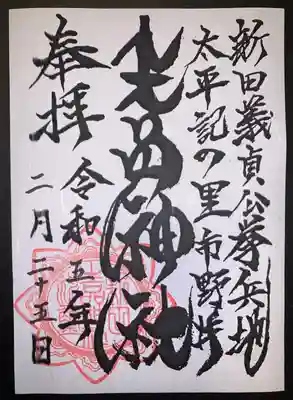 新田義貞公挙兵地
太平記の里市野井
生品神社
奉拝
令和五年
二月二十五日